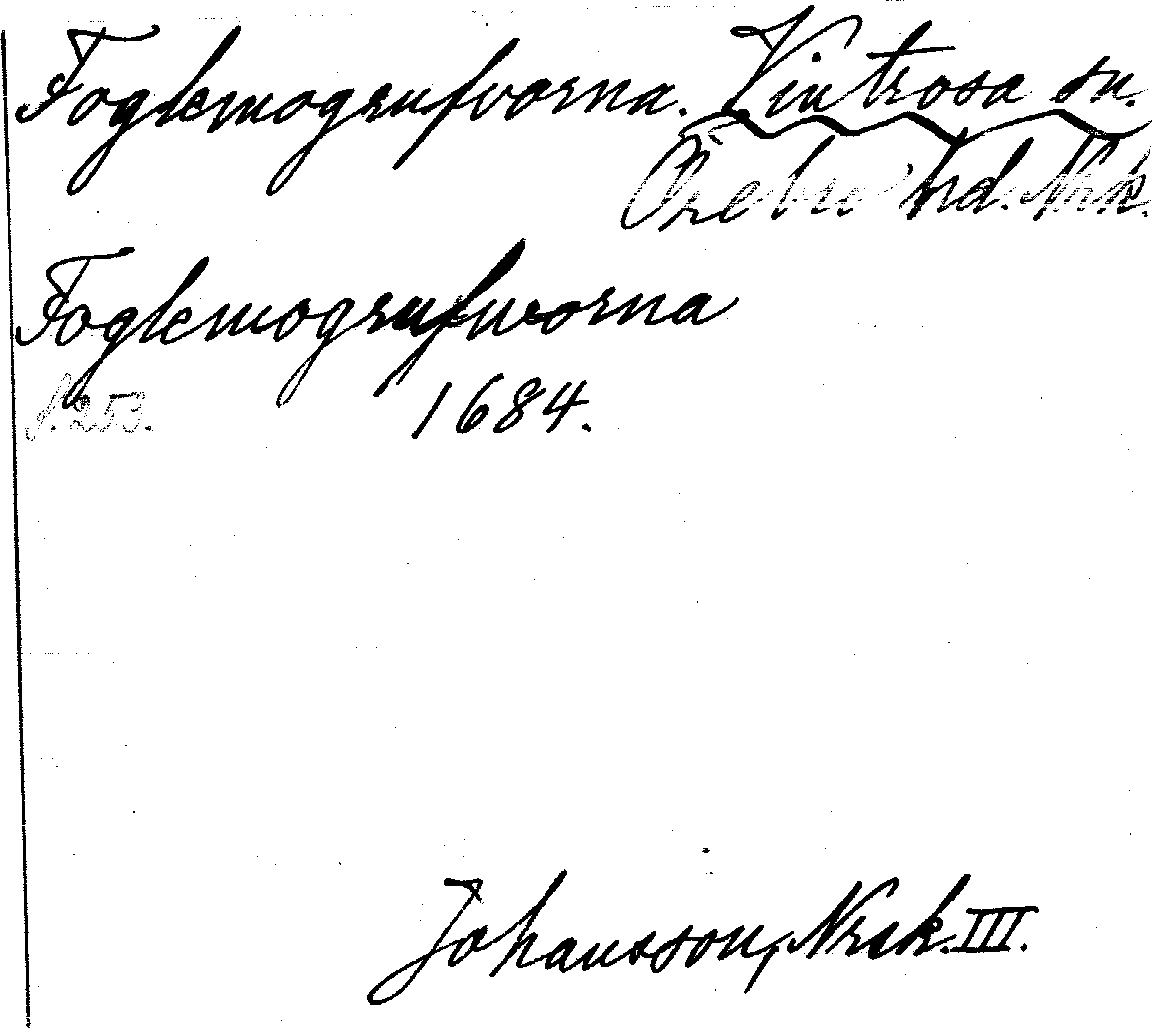 Foglemogrufvorna. Vintrosa sn.
Örebro hd. Nrk.
Foglemogrufworna
s. 253. 1684.
Johansson, Nrck. III.